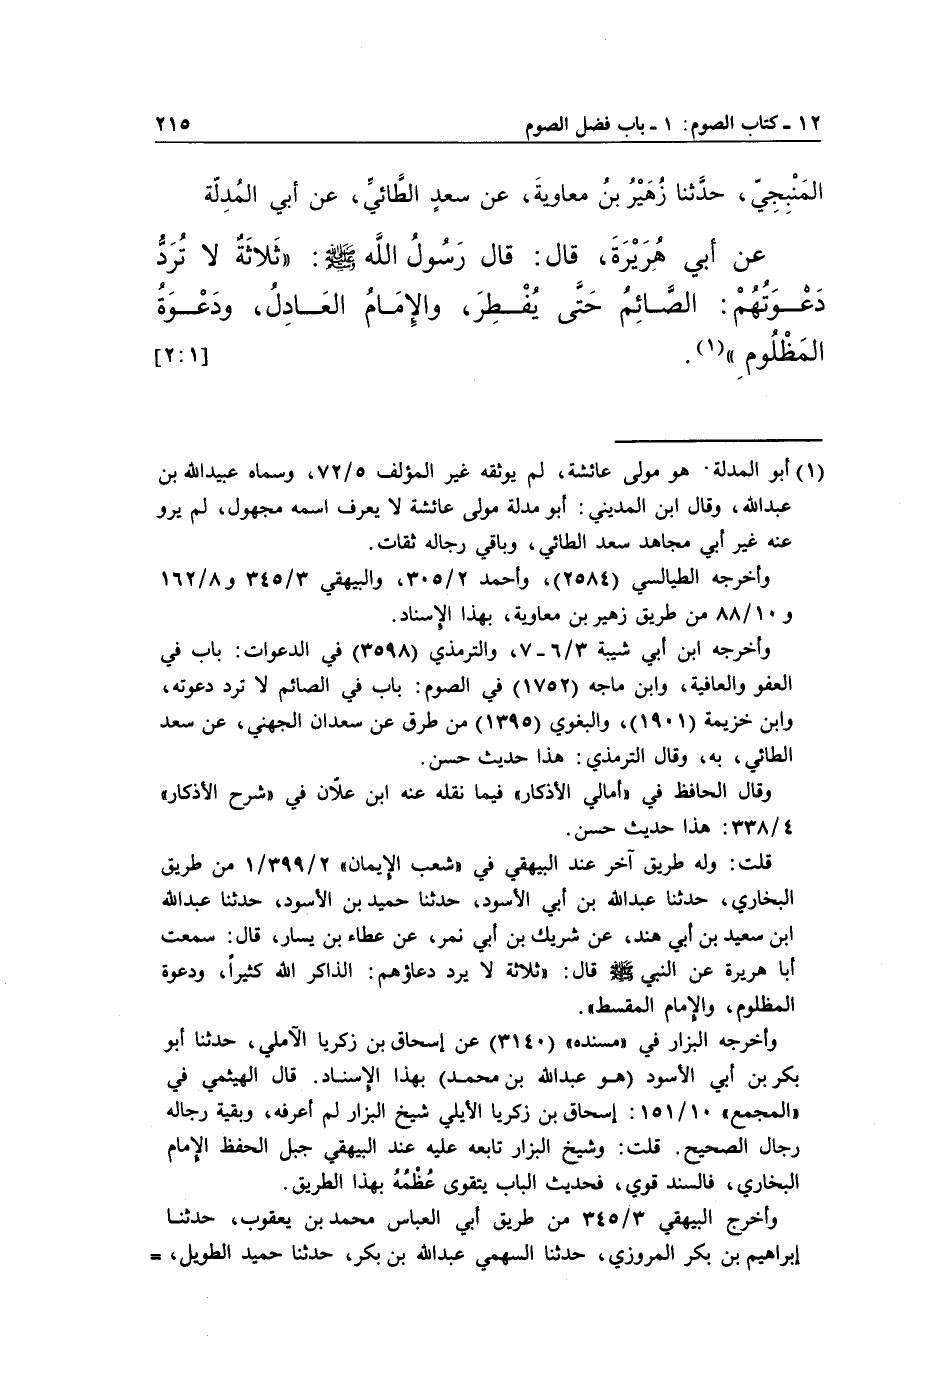 ١٢ ـ كتاب الصوم: ١ ـ باب فضل الصوم ٢١٥
المَنْبِجِيّ، حدَّثنا زُهَيْرُ بنُ معاويةَ، عن سعدٍ الطَّائيِّ، عن أبي المُدِلّة
عن أبي هُرَيْرَةَ، قال: قال رَسُولُ اللَّه ﷺ: «ثَلاثَةٌ لا تُرَدُّ
دَعْوَتُهُمْ: الصَّائِمُ حَتَّى يُفْطِرَ، والإِمَامُ العَادِلُ، ودَعْوَةُ
المَظْلُومِ»(١). [١:٢]
(١) أبو المدلة. هو مولى عائشة، لم يوثقه غير المؤلف ٧٢/٥، وسماه عبيدالله بن
عبدالله، وقال ابن المديني: أبو مدلة مولى عائشة لا يعرف اسمه مجهول، لم يرو
عنه غير أبي مجاهد سعد الطائي، وباقي رجاله ثقات.
وأخرجه الطيالسي (٢٥٨٤)، وأحمد ٣٠٥/٢، والبيهقي ٣٤٥/٣ و ١٦٢/٨
و ٨٨/١٠ من طريق زهير بن معاوية، بهذا الإِسناد.
وأخرجه ابن أبي شيبة ٦/٣ ـ ٧، والترمذي (٣٥٩٨) في الدعوات: باب في
العفو والعافية، وابن ماجه (١٧٥٢) في الصوم: باب في الصائم لا ترد دعوته،
وابن خزيمة (١٩٠١)، والبغوي (١٣٩٥) من طرق عن سعدان الجهني، عن سعد
الطائي، به، وقال الترمذي: هذا حديث حسن.
وقال الحافظ في «أمالي الأذكار» فيما نقله عنه ابن علّان في «شرح الأذكار»
٣٣٨/٤: هذا حديث حسن.
قلت: وله طريق آخر عند البيهقي في «شعب الإِيمان» ١/٣٩٩/٢ من طريق
البخاري، حدثنا عبدالله بن أبي الأسود، حدثنا حميد بن الأسود، حدثنا عبدالله
ابن سعيد بن أبي هند، عن شريك بن أبي نمر، عن عطاء بن يسار، قال: سمعت
أبا هريرة عن النبي ﷺ قال: «ثلاثة لا يرد دعاؤهم: الذاكر الله كثيراً، ودعوة
المظلوم، والإِمام المقسط».
وأخرجه البزار في «مسنده» (٣١٤٠) عن إسحاق بن زكريا الآملي، حدثنا أبو
بكر بن أبي الأسود (هو عبدالله بن محمد) بهذا الإِسناد. قال الهيثمي في
«المجمع» ١٥١/١٠: إسحاق بن زكريا الأيلي شيخ البزار لم أعرفه، وبقية رجاله
رجال الصحيح. قلت: وشيخ البزار تابعه عليه عند البيهقي جبل الحفظ الإِمام
البخاري، فالسند قوي، فحديث الباب يتقوى عُظْمُهُ بهذا الطريق.
وأخرج البيهقي ٣٤٥/٣ من طريق أبي العباس محمد بن يعقوب، حدثنا
إبراهيم بن بكر المروزي، حدثنا السهمي عبدالله بن بكر، حدثنا حميد الطويل، =